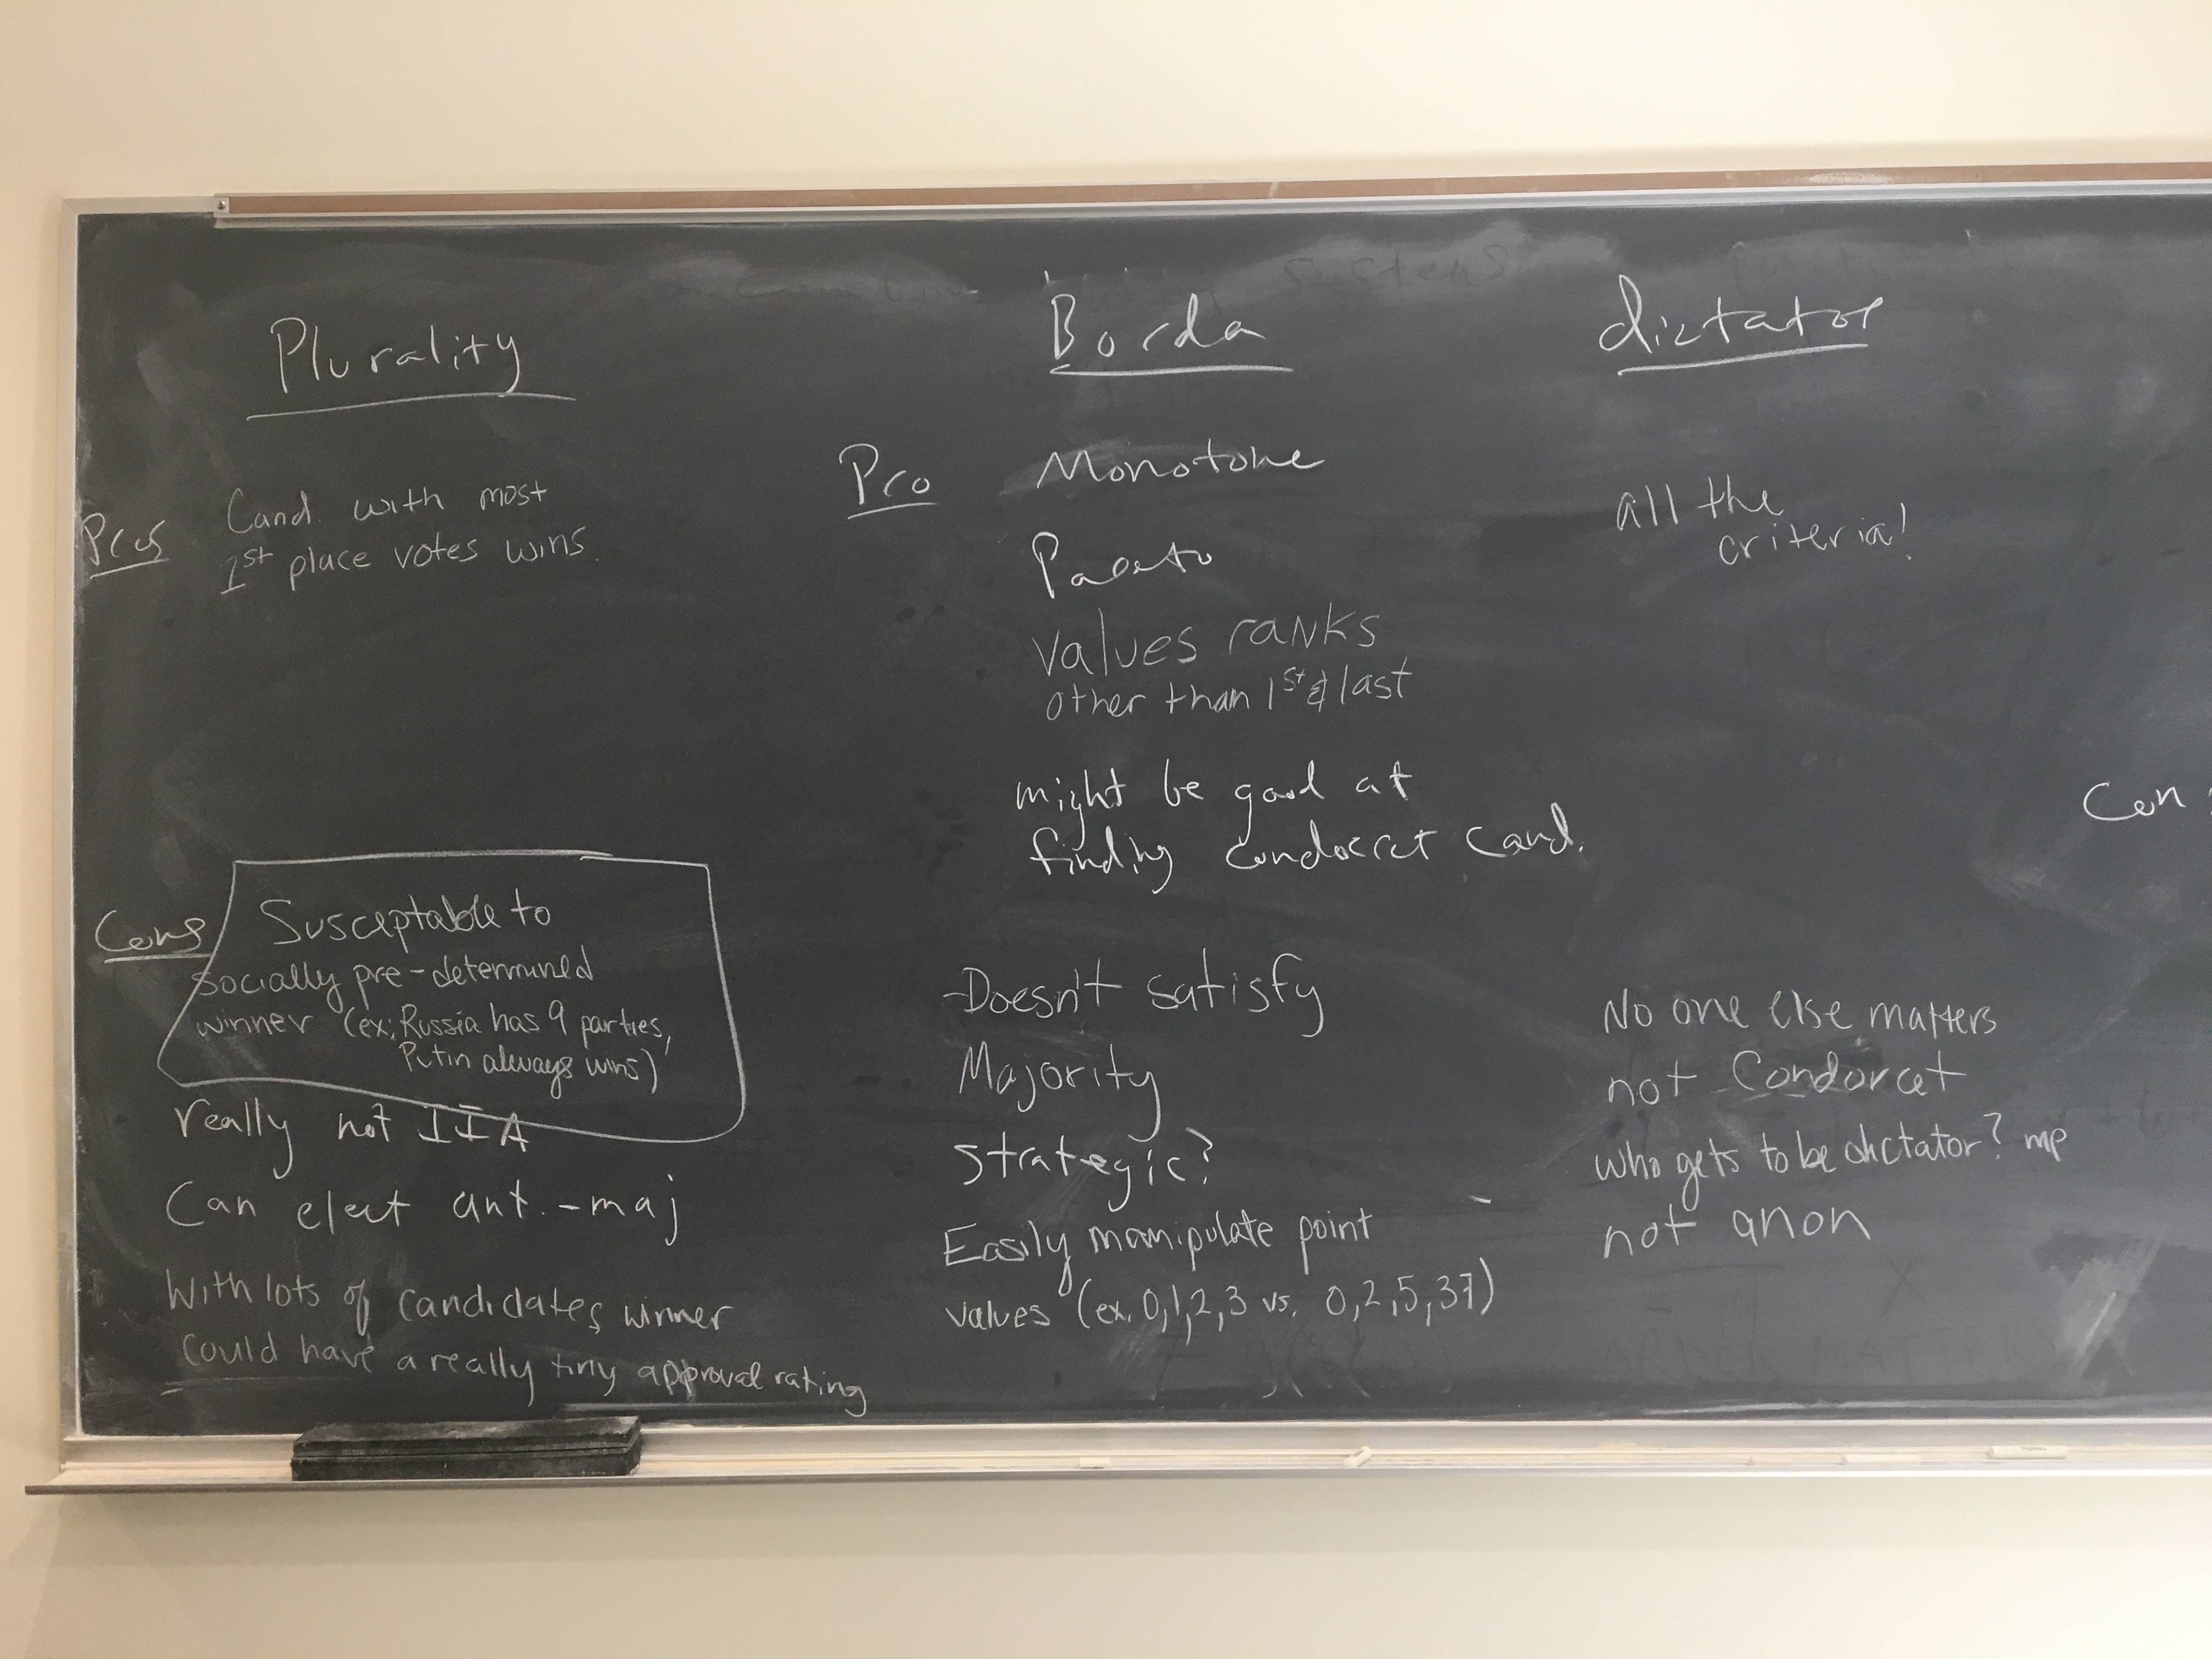 Plurality
Pros
Cand. with most
1st place votes wins.
Cons
Susceptable to
socially pre-determined
winner (ex: Russia has 9 parties,
Putin always wins)
really not IIA
Can elect ant.-maj
With lots of candidates winner
could have a really tiny approval rating
Borda
Pro
Monotone
Pareto
values ranks
other than 1st & last
might be good at
finding condocret cand.
-Doesn't satisfy
Majority
Strategic?
Easily manipulate point
values (ex. 0,1,2,3 vs. 0,2,5,37)
dictator
all the
criteria!
No one else matters
not Condorcet
who gets to be dictator? mp
not anon
Con